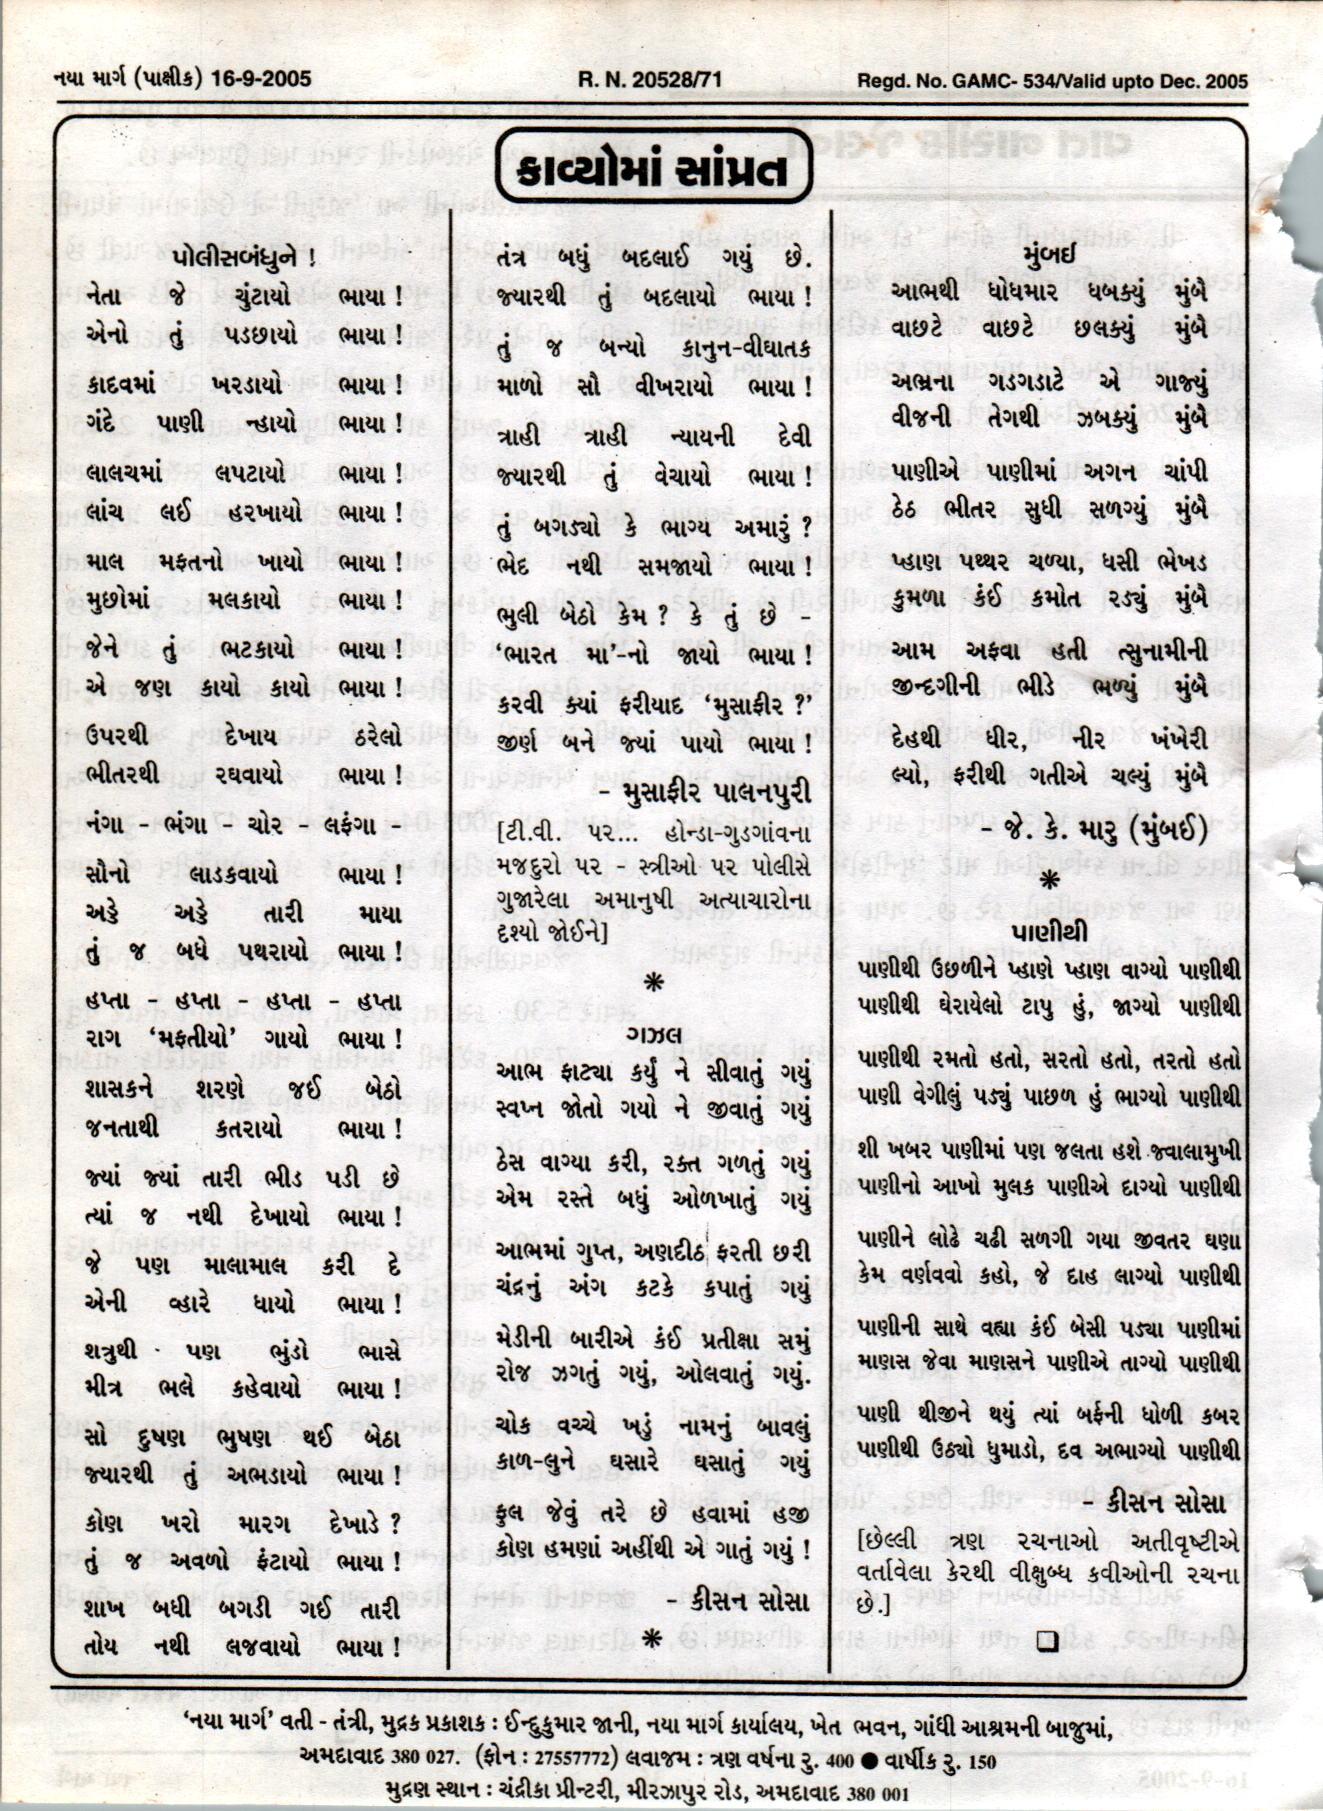 નયા માર્ગ (પાક્ષીક) 16-9-2005
R. N. 20528/71
Regd. No. GAMC- 534/Valid upto Dec. 2005
કાવ્યોમાં સાંપ્રત
પોલીસબંધુને !
નેતા જે ચુંટાયો ભાયા !
એનો તું પડછાયો ભાયા !
કાદવમાં ખરડાયો ભાયા !
ગંદે પાણી ન્હાયો ભાયા !
લાલચમાં લપટાયો ભાયા !
લાંચ લઈ હરખાયો ભાયા !
માલ મફતનો ખાયો ભાયા !
મુછોમાં મલકાયો ભાયા !
જેને તું ભટકાયો ભાયા !
એ જણ કાયો કાયો ભાયા !
ઉપરથી દેખાય ઠરેલો
ભીતરથી રઘવાયો ભાયા !
નંગા - ભંગા - ચોર - લફંગા -
સૌનો લાડકવાયો ભાયા !
અડે અડે તારી માયા
તું જ બધે પથરાયો ભાયા !
હપ્તા - હપ્તા - હપ્તા - હપ્તા
રાગ ‘મફતીયો’ ગાયો ભાયા !
શાસકને શરણે જઈ બેઠો
જનતાથી કતરાયો ભાયા !
જ્યાં જ્યાં તારી ભીડ પડી છે
ત્યાં જ નથી દેખાયો ભાયા !
જે પણ માલામાલ કરી દે
એની વ્હારે ધાયો ભાયા !
શત્રુથી પણ ભુંડો ભાસે
મીત્ર ભલે કહેવાયો ભાયા !
સૌ દુષણ ભુષણ થઈ બેઠા
જ્યારથી તું અભડાયો ભાયા !
કોણ ખરો મારગ દેખાડે ?
તું જ અવળો ફંટાયો ભાયા !
શાખ બધી બગડી ગઈ તારી
તોય નથી લજવાયો ભાયા !
તંત્ર બધું બદલાઈ ગયું છે.
જ્યારથી તું બદલાયો ભાયા !
તું જ બન્યો કાનુન-વીઘાતક
માળો સૌ વીખરાયો ભાયા !
ત્રાહી ત્રાહી ન્યાયની દેવી
જ્યારથી તું વેચાયો ભાયા !
તું બગડ્યો કે ભાગ્ય અમારું ?
ભેદ નથી સમજાયો ભાયા !
ભુલી બેઠો કેમ ? કે તું છે -
‘ભારત મા’-નો જાયો ભાયા !
કરવી ક્યાં ફરીયાદ ‘મુસાફીર ?’
જીર્ણ બને જ્યાં પાયો ભાયા !
- મુસાફીર પાલનપુરી
[ટી.વી. પર... હોન્ડા-ગુડગાંવના
મજદુરો પર - સ્ત્રીઓ પર પોલીસે
ગુજારેલા અમાનુષી અત્યાચારોના
દૃશ્યો જોઈને]
*
ગઝલ
આભ ફાટ્યા કર્યું ને સીવાતું ગયું
સ્વપ્ન જોતો ગયો ને જીવાતું ગયું
ઠેસ વાગ્યા કરી, રક્ત ગળતું ગયું
એમ રસ્તે બધું ઓળખાતું ગયું
આભમાં ગુપ્ત, અણદીઠ ફરતી છરી
ચંદ્રનું અંગ કટકે કપાતું ગયું
મેડીની બારીએ કંઈ પ્રતીક્ષા સમું
રોજ ઝગતું ગયું, ઓલવાતું ગયું.
ચોક વચ્ચે ખડું નામનું બાવલું
કાળ-લુને ઘસારે ઘસાતું ગયું
ફુલ જેવું તરે છે હવામાં હજી
કોણ હમણાં અહીંથી એ ગાતું ગયું !
- કીસન સોસા
*
મુંબઈ
આભથી ધોધમાર ધબક્યું મુંબૈ
વાછટે વાછટે છલક્યું મુંબૈ
અભ્રના ગડગડાટે એ ગાજ્યું
વીજની તેગથી ઝબક્યું મુંબૈ
પાણીએ પાણીમાં અગન ચાંપી
ઠેઠ ભીતર સુધી સળગ્યું મુંબૈ
પ્હાણ પથ્થર ચળ્યા, ધસી ભેખડ
કુમળા કંઈ કમોત રડ્યું મુંબૈ
આમ અફવા હતી ત્સુનામીની
જીન્દગીની ભીડે ભળ્યું મુંબૈ
દેહથી ધીર, નીર ખંખેરી
લ્યો, ફરીથી ગતીએ ચલ્યું મુંબૈ
- જે. કે. મારુ (મુંબઈ)
*
પાણીથી
પાણીથી ઉછળીને પ્હાણે પ્હાણ વાગ્યો પાણીથી
પાણીથી ઘેરાયેલો ટાપુ હું, જાગ્યો પાણીથી
પાણીથી રમતો હતો, સરતો હતો, તરતો હતો
પાણી વેગીલું પડ્યું પાછળ હું ભાગ્યો પાણીથી
શી ખબર પાણીમાં પણ જલતા હશે જ્વાલામુખી
પાણીનો આખો મુલક પાણીએ દાગ્યો પાણીથી
પાણીને લોઢે ચઢી સળગી ગયા જીવતર ઘણા
કેમ વર્ણવવો કહો, જે દાહ લાગ્યો પાણીથી
પાણીની સાથે વહ્યા કંઈ બેસી પડ્યા પાણીમાં
માણસ જેવા માણસને પાણીએ તાગ્યો પાણીથી
પાણી થીજીને થયું ત્યાં બર્ફની ધોળી કબર
પાણીથી ઉઠ્યો ધુમાડો, દવ અભાગ્યો પાણીથી
- કીસન સોસા
[છેલ્લી ત્રણ રચનાઓ અતીવૃષ્ટીએ
વર્તાવેલા કેરથી વીક્ષુબ્ધ કવીઓની રચના
છે.]
‘નયા માર્ગ’ વતી - તંત્રી, મુદ્રક પ્રકાશક : ઈન્દુકુમાર જાની, નયા માર્ગ કાર્યાલય, ખેત ભવન, ગાંધી આશ્રમની બાજુમાં,
અમદાવાદ 380 027. (ફોન : 27557772) લવાજમ : ત્રણ વર્ષના રુ. 400 ● વાર્ષીક રુ. 150
મુદ્રણ સ્થાન : ચંદ્રીકા પ્રીન્ટરી, મીરઝાપુર રોડ, અમદાવાદ 380 001